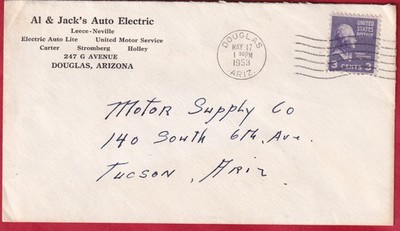 Al & Jack's Auto Electric
Leece-Neville
Electric Auto Lite United Motor Service
Carter Stromberg Holley
247 G AVENUE
DOUGLAS, ARIZONA
DOUGLAS
MAY 17
1 PM
1953
ARIZ.
UNITED STATES
3 CENTS 3
Motor Supply Co
140 South 6th, Ave.
Tucson, Ariz.